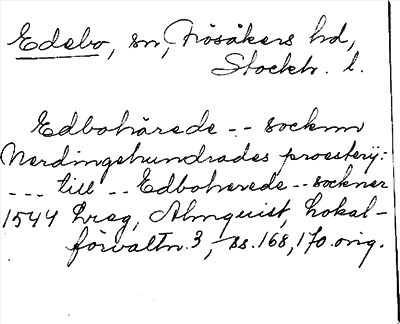 Edebo, sn, Frösåkers hd,
Stockh. l.
Edbohärede -- socknn
Nerdingehundrades proestery:
--- till -- Edboherede -- sockner
1544 Lreg, Almquist, Lokal-
förvaltn. 3, ss. 168, 170. orig.